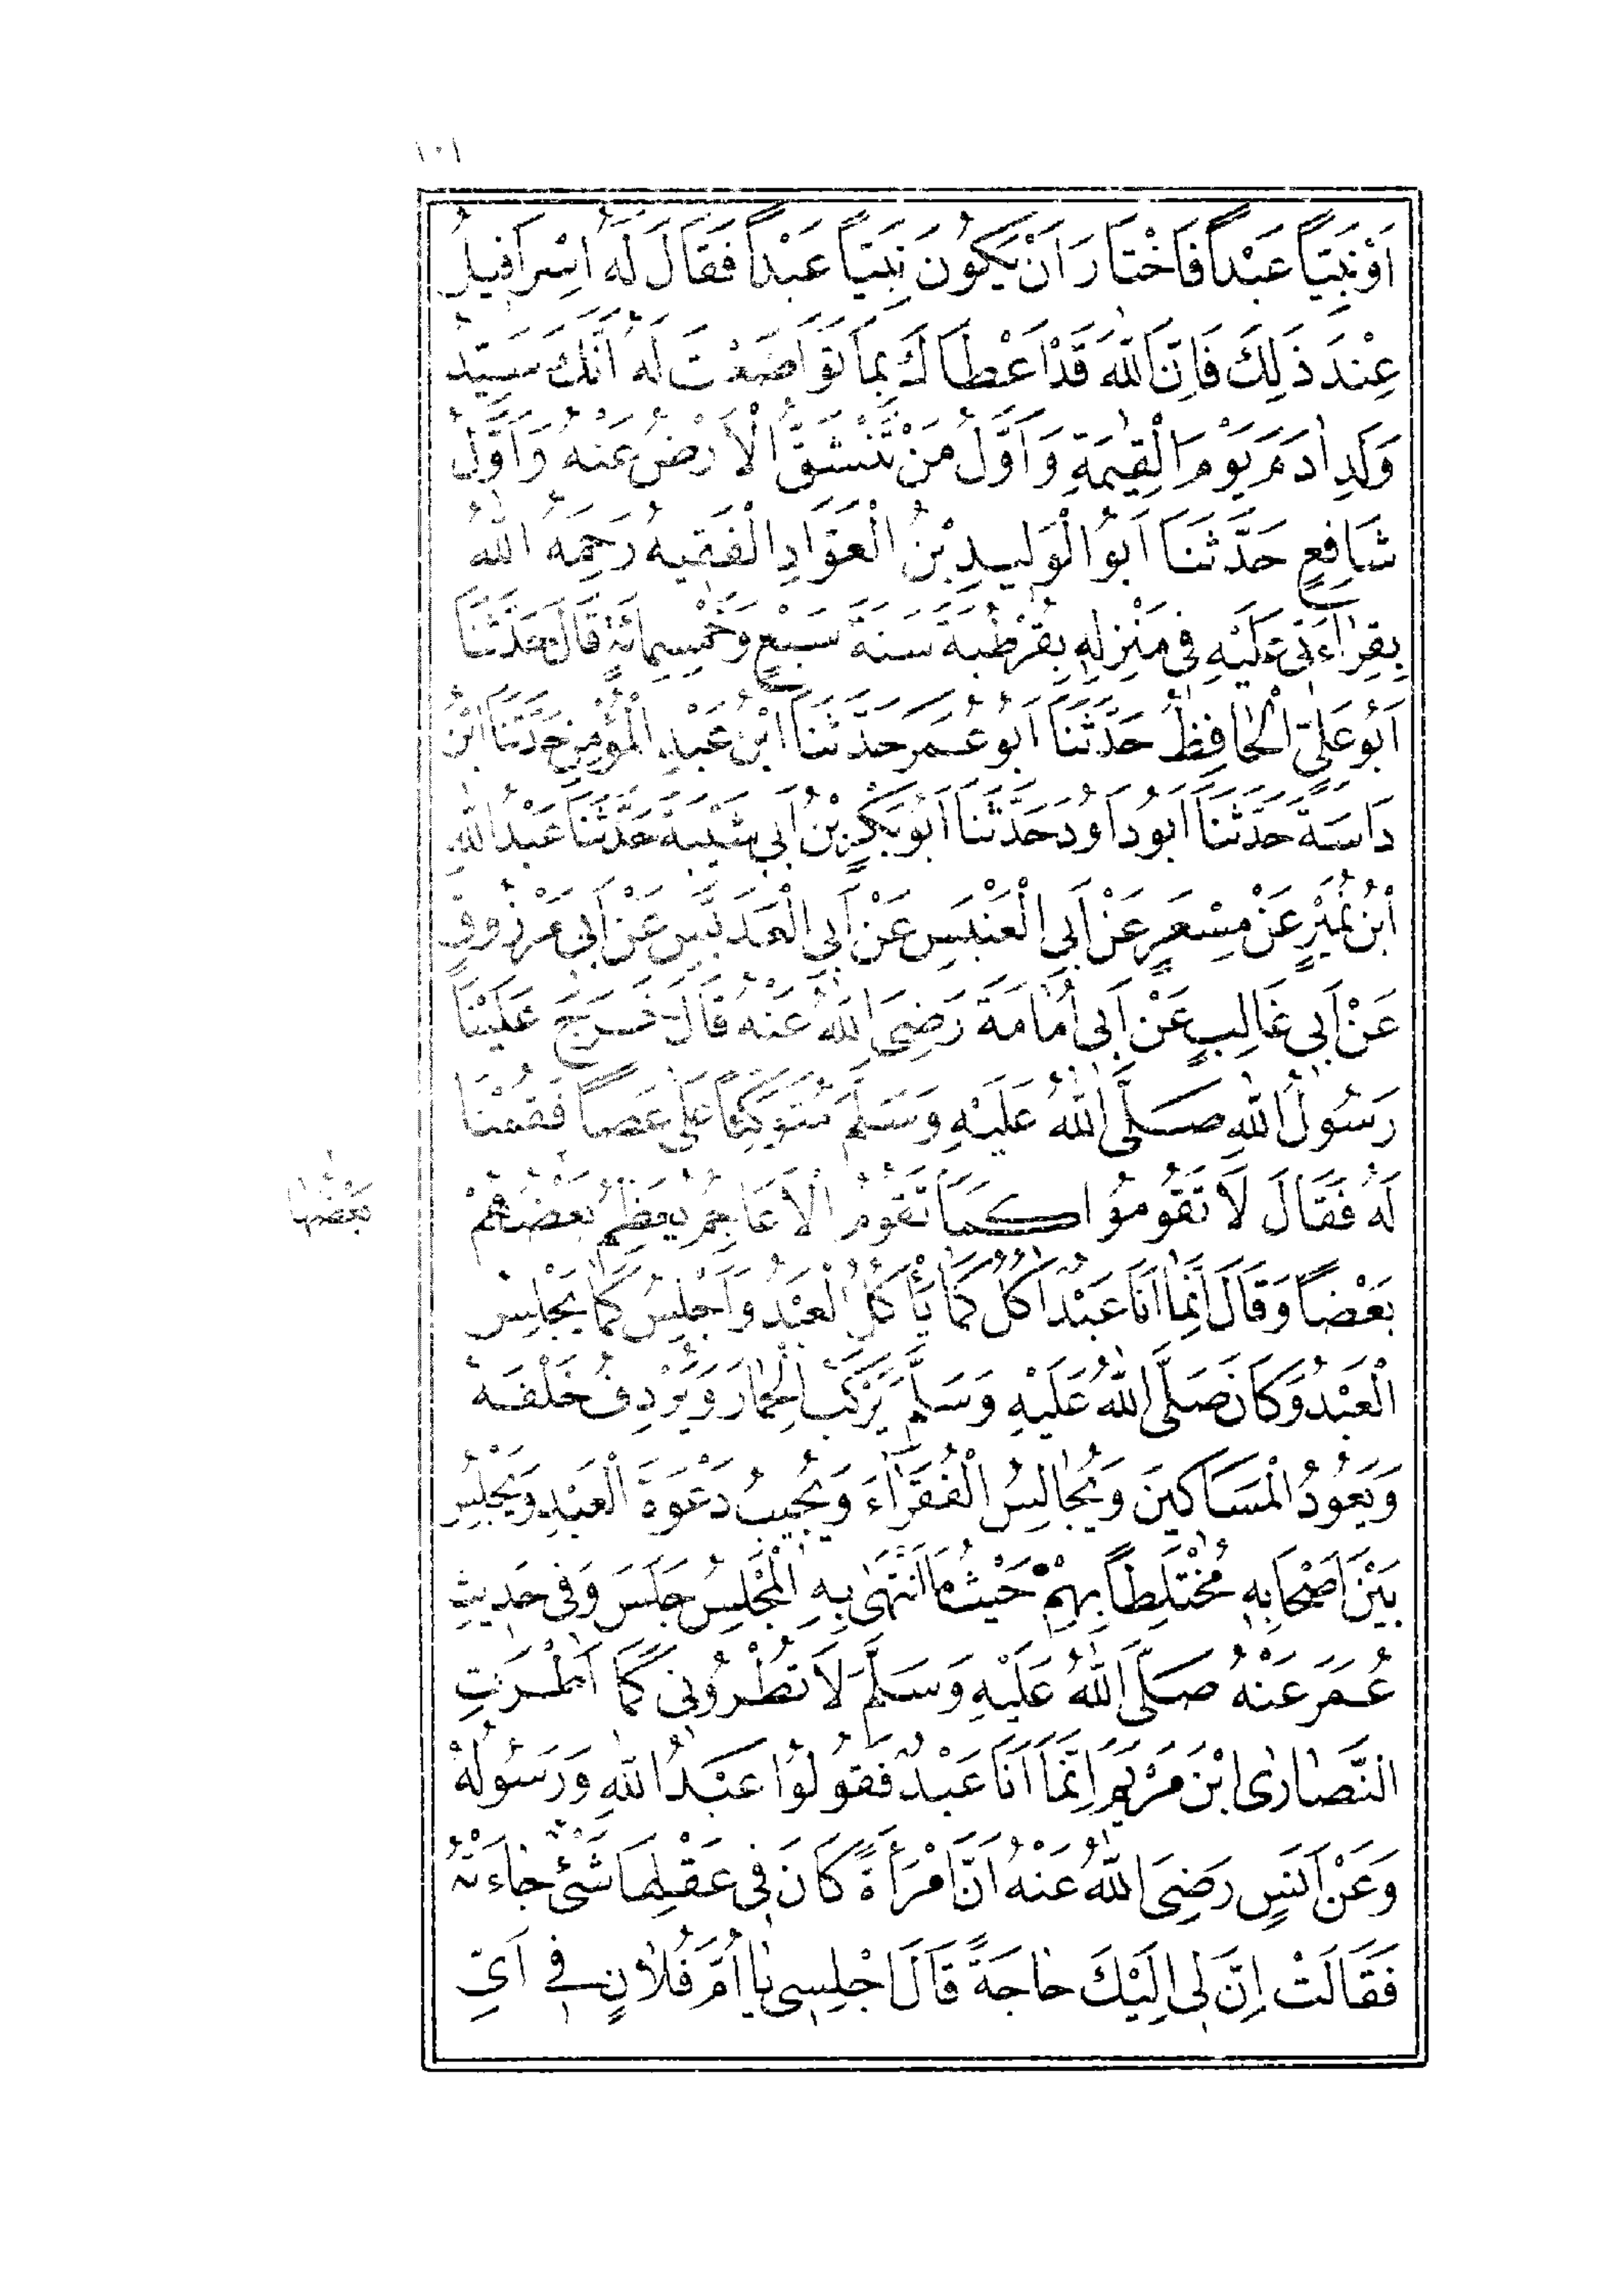 ١٠١
اَوْ نَبِيّاً عَبْداً فَاخْتَارَ اَنْ يَكُونَ نَبِيّاً عَبْداً فَقَالَ لَهُ اِسْرَافِيلُ
عِنْدَ ذٰلِكَ فَاِنَّ اللّٰهَ قَدْ اَعْطَاكَ بِمَا تَوَاضَعْتَ لَهُ اَنَّكَ سَيِّدُ
وَلَدِ اٰدَمَ يَوْمَ الْقِيٰمَةِ وَاَوَّلُ مَنْ تَنْشَقُّ الْاَرْضُ عَنْهُ وَاَوَّلُ
شَافِعٍ حَدَّثَنَا اَبُو الْوَلِيدِ بْنُ الْعَوَّادِ الْفَقِيهُ رَحِمَهُ اللّٰهُ
بِقِرَاءَتِى عَلَيْهِ فِى مَنْزِلِهِ بِقُرْطُبَةَ سَنَةَ سَبْعٍ وَخَمْسِمِائَةٍ قَالَ حَدَّثَنَا
اَبُو عَلِىٍّ الْحَافِظُ حَدَّثَنَا اَبُو عُمَرَ حَدَّثَنَا ابْنُ عَبْدِ الْمُؤْمِنِ حَدَّثَنَا ابْنُ
دَاسَةَ حَدَّثَنَا اَبُو دَاوُدَ حَدَّثَنَا اَبُو بَكْرِ بْنُ اَبِى شَيْبَةَ حَدَّثَنَا عَبْدُ اللّٰهِ
ابْنُ نُمَيْرٍ عَنْ مِسْعَرٍ عَنْ اَبِى الْعَنْبَسِ عَنْ اَبِى الْعَدَبَّسِ عَنْ اَبِى مَرْزُوقٍ
عَنْ اَبِى غَالِبٍ عَنْ اَبِى اُمَامَةَ رَضِىَ اللّٰهُ عَنْهُ قَالَ خَرَجَ عَلَيْنَا
رَسُولُ اللّٰهِ صَلَّى اللّٰهُ عَلَيْهِ وَسَلَّمَ مُتَوَكِّئاً عَلَى عَصاً فَقُمْنَا
لَهُ فَقَالَ لَا تَقُومُوا كَمَا تَقُومُ الْاَعَاجِمُ يُعَظِّمُ بَعْضُهُمْ
بَعْضُهَا
بَعْضاً وَقَالَ اِنَّمَا اَنَا عَبْدٌ اٰكُلُ كَمَا يَأْكُلُ الْعَبْدُ وَاَجْلِسُ كَمَا يَجْلِسُ
الْعَبْدُ وَكَانَ صَلَّى اللّٰهُ عَلَيْهِ وَسَلَّمَ يَرْكَبُ الْحِمَارَ وَيُرْدِفُ خَلْفَهُ
وَيَعُودُ الْمَسَاكِينَ وَيُجَالِسُ الْفُقَرَاءَ وَيُجِيبُ دَعْوَةَ الْعَبْدِ وَيَجْلِسُ
بَيْنَ اَصْحَابِهِ مُخْتَلِطاً بِهِمْ حَيْثُمَا انْتَهٰى بِهِ الْمَجْلِسُ جَلَسَ وَفِى حَدِيثِ
عُمَرَ عَنْهُ صَلَّى اللّٰهُ عَلَيْهِ وَسَلَّمَ لَا تُطْرُونِى كَمَا اَطْرَتِ
النَّصَارٰى ابْنَ مَرْيَمَ اِنَّمَا اَنَا عَبْدٌ فَقُولُوا عَبْدُ اللّٰهِ وَرَسُولُهُ
وَعَنْ اَنَسٍ رَضِىَ اللّٰهُ عَنْهُ اَنَّ امْرَأَةً كَانَ فِى عَقْلِهَا شَىْءٌ جَاءَتْهُ
فَقَالَتْ اِنَّ لِى اِلَيْكَ حَاجَةً قَالَ اجْلِسِى يَا اُمَّ فُلَانٍ فِى اَىِّ